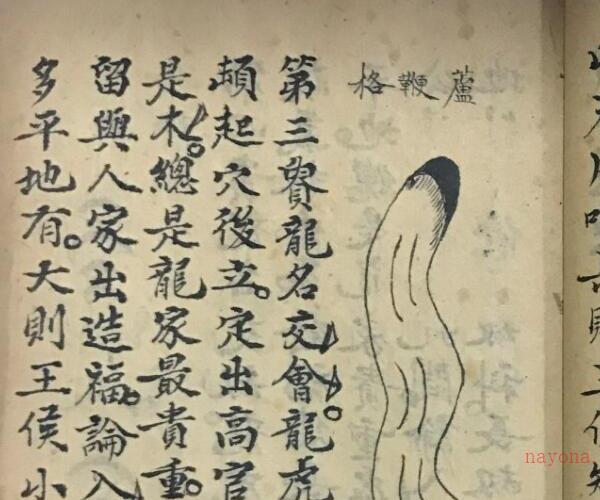 蘆鞭格
第三貴龍名交會。龍虎
頓起穴後立。定出高官
是木。總是龍家最貴重。
留與人家出造福。論入
多平地有。大則王侯小
nayona.